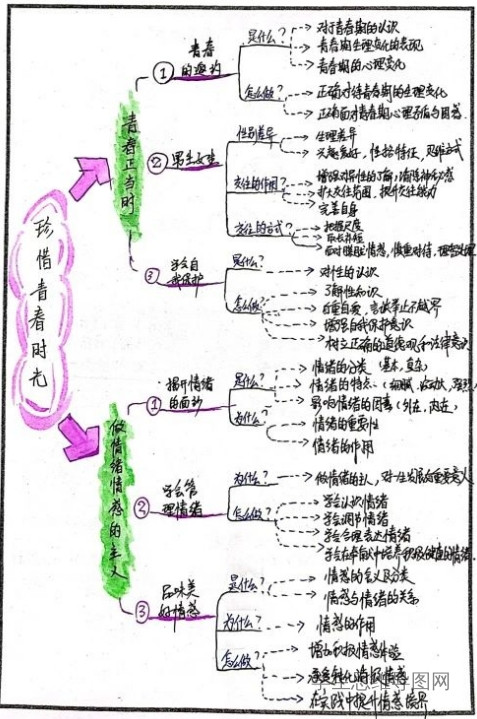 珍惜青春时光
青春正当时
① 青春
的邀约
是什么?
对于青春期的认识
青春期生理变化的表现
青春期的心理变化
怎么做?
正确对待青春期的生理变化
正确面对青春期心理矛盾与困惑
② 男生女生
性别差异
生理差异
兴趣爱好，性格特征，思维方式
交往的作用?
增强对异性的了解，
扩大交往范围，提升交往能力
完善自身
交往的方式?
把握尺度
取长补短
面对朦胧情感，慎重对待，理智处理
③ 学会自
我保护
是什么?
对性的认识
怎么做?
了解性知识
自重自爱，言谈举止不越界
增强自我保护意识
树立正确的道德观和法律意识
做情绪情感的主人
① 揭开情绪
的面纱
是什么?
情绪的分类（基本，复杂）
情绪的特点
影响情绪的因素（外在，内在）
为什么?
情绪的重要性
情绪的作用
② 学会管
理情绪
为什么?
做情绪的主人，对一生发展有重要意义
怎么做?
学会认识情绪
学会调节情绪
学会合理表达情绪
学会在奉献中培养积极健康的情绪
③ 品味美
好情感
是什么?
情感的含义及分类
情感与情绪的关系
为什么?
情感的作用
怎么做?
增加积极情感体验
承受转化消极情感
在实践中提升情感境界
思维导图网